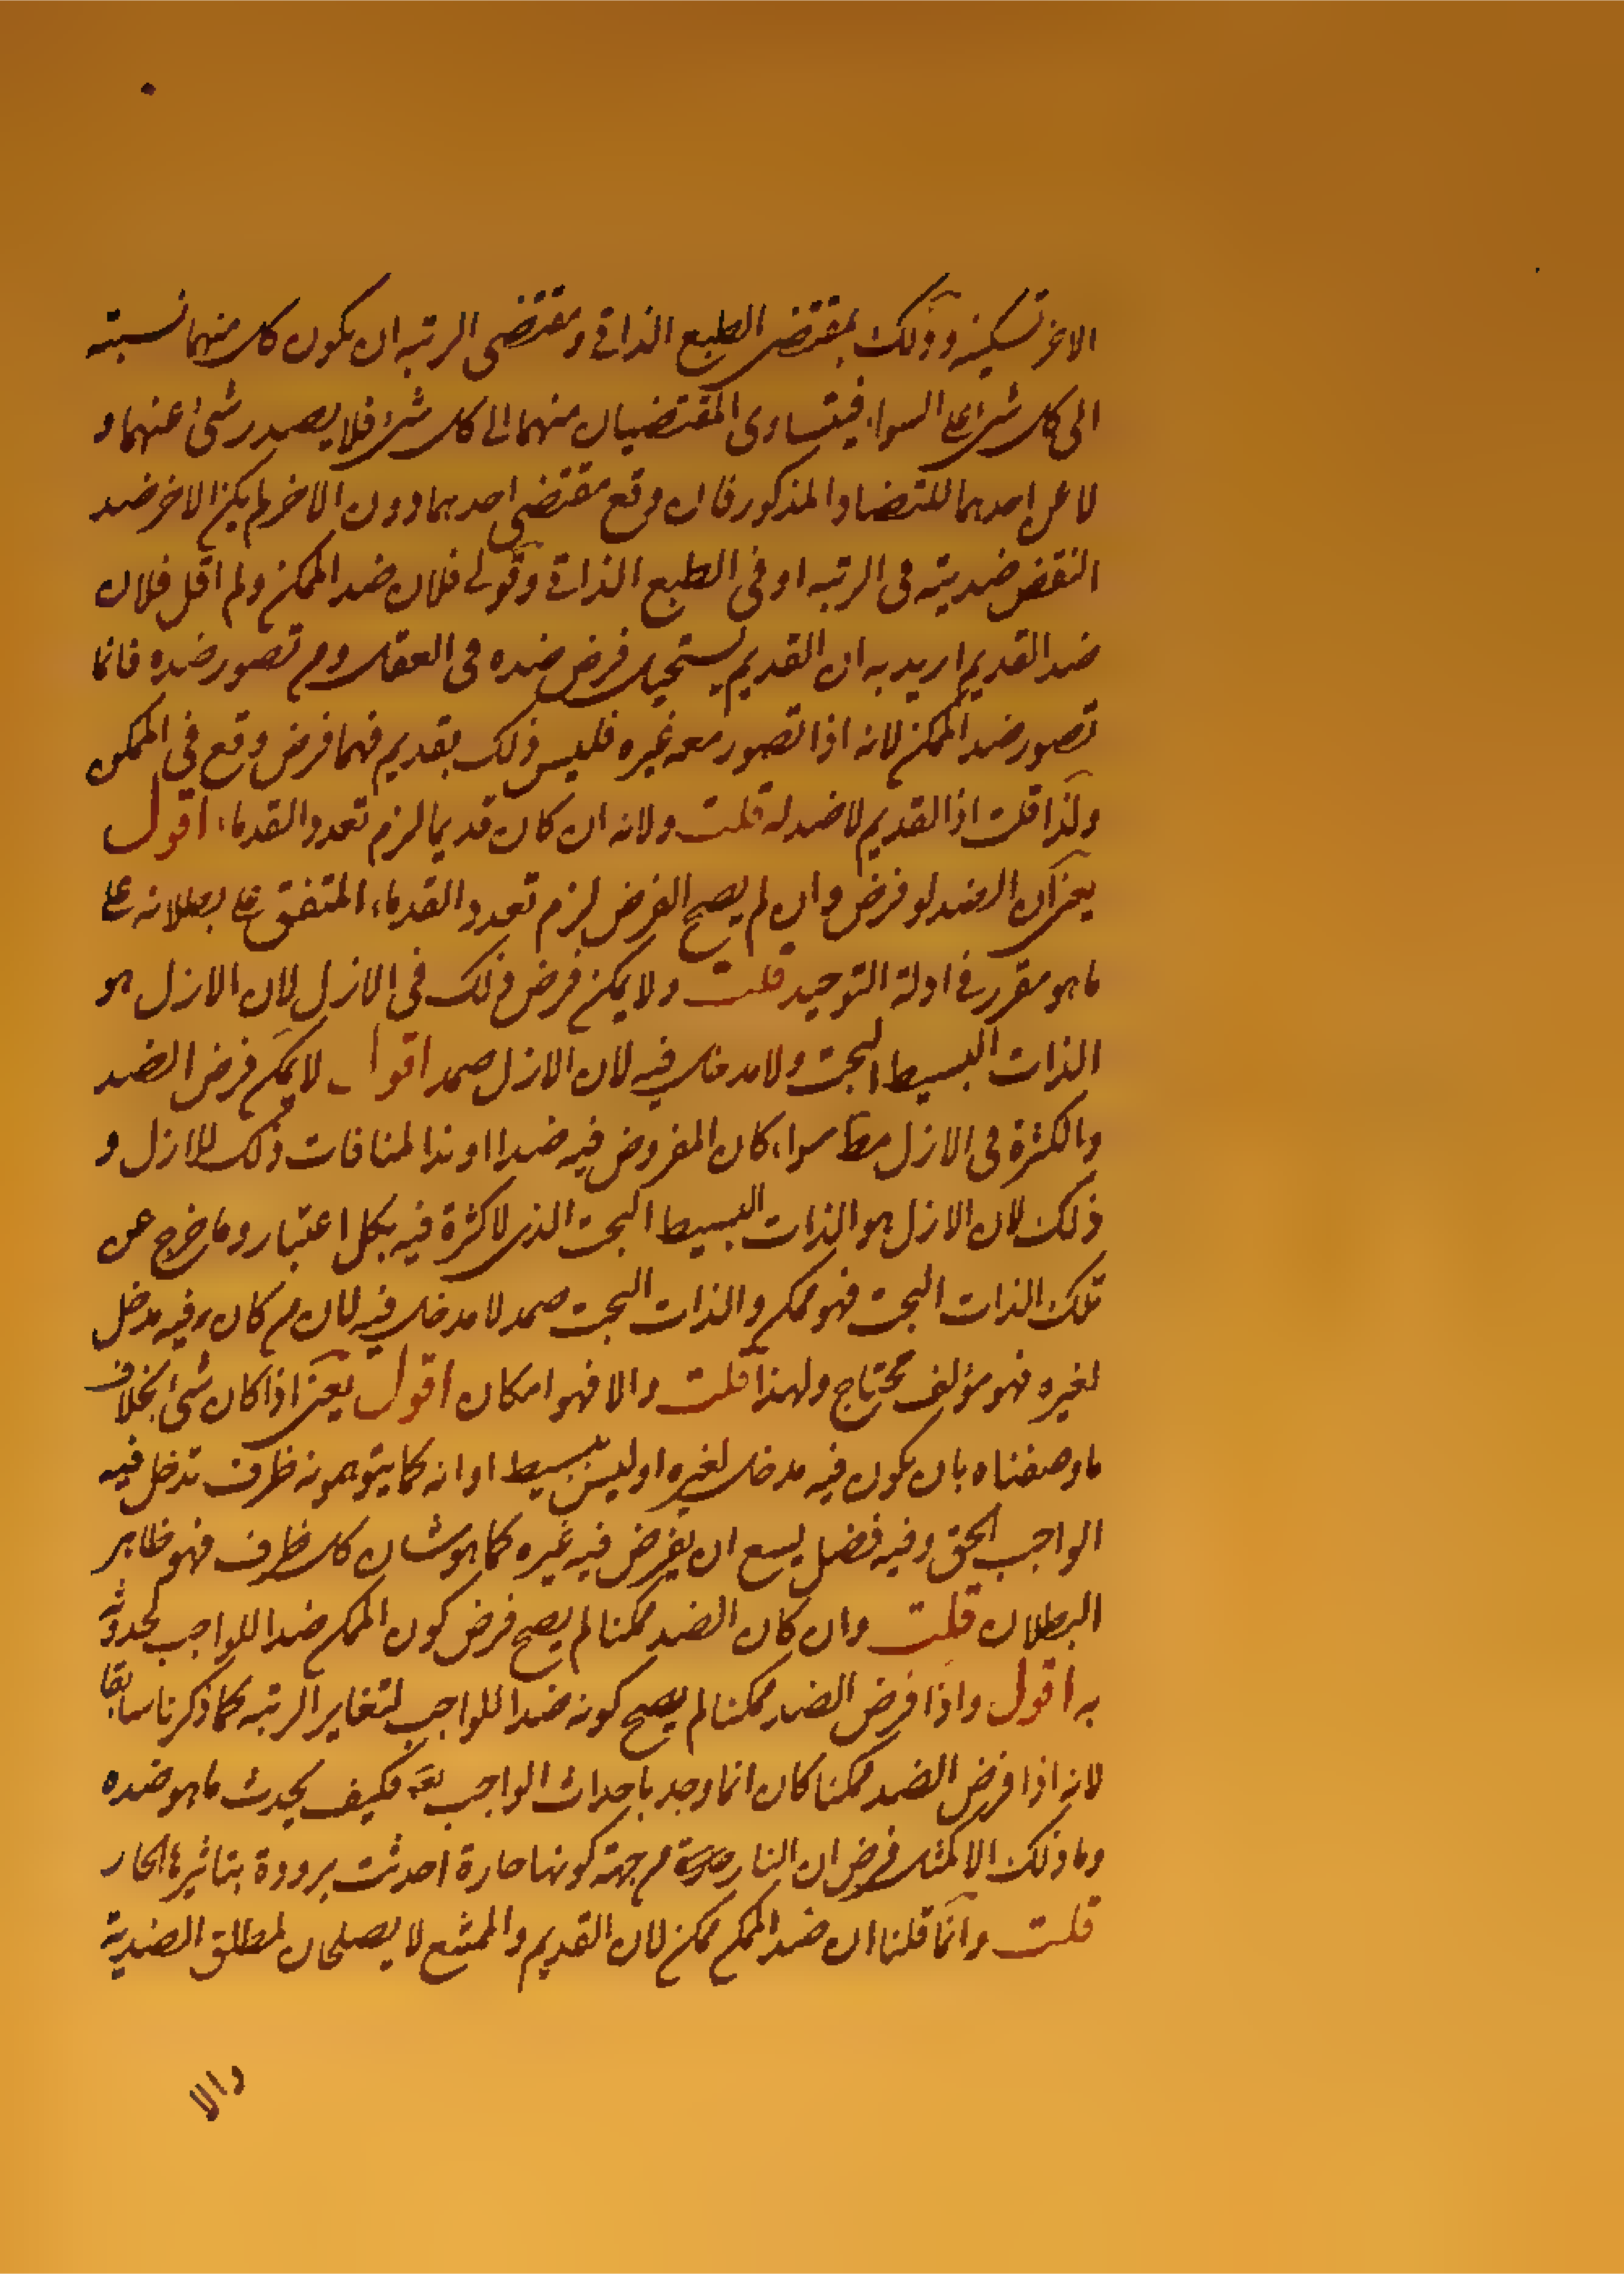 الاخر تسكينه وذلك بمقتضى الطبع الذاتي ومقتضى الرتبه ان يكون كل منهما نسبته
الى كل شئ على السواء فيتساوى المقتضيان منهما الى كل شئ فلا يصدر شئ عنهما و
لا عن احدهما للتضاد المذكور فان وقع مقتضى احدهما دون الاخر لم يكن الاخر ضد
النقض ضديته فى الرتبه او فى الطبع الذاتي وقولى فلان ضد الممكن ولم اقل فلان
ضد القديم اريد به ان القديم يستحيل فرض ضده فى العقل وم تصور ضده فانما
تصور ضد الممكن لانه اذا تصور معه غيره فليس ذلك بقديم فهما فرض وقع فى الممكن
ولذا قلت اذ القديم لا ضد له قلت ولانه ان كان قديما لزم تعدد القدماء اقول
يعنى ان الضد لو فرض وان لم يصح الفرض لزم تعدد القدماء المتفق على بطلانه على
ما هو مقرر فى ادلة التوحيد قلت ولا يمكن فرض ذلك فى الازل لان الازل هو
الذات البسيط البحت ولا مدخل فيه لان الازل صمد اقول لا يمكن فرض الضد
والكثرة فى الازل مط سواء كان المفروض فيه ضدا او ندا لمنافات ذلك للازل و
ذلك لان الازل هو الذات البسيط البحت الذى لا كثرة فيه بكل اعتبار وما خرج عن
تلك الذات البحت فهو ممكن والذات البحت صمد لا مدخل فيه لان م كان فيه مدخل
لغيره فهو مؤلف محتاج ولهذا قلت والا فهو امكان اقول يعنى اذا كان شئ بخلاف
ما وصفناه بان يكون فيه مدخل لغيره او ليس ببسيط او انه كما يتوهمونه ظرف تدخل فيه
الواجب الحق وفيه فضل يسع ان يفرض فيه غيره كما هو شان كل ظرف فهو ظاهر
البطلان قلت وان كان الضد ممكنا لم يصح فرض كون الممكن ضدا للواجب لحدوثه
به اقول واذا فرض الضد ممكنا لم يصح كونه ضدا للواجب لتغاير الرتبه كما ذكرنا سابقا
لانه اذا فرض الضد ممكنا كان انما وجد باحداث الواجب تع فكيف يحدث ما هو ضده
وما ذلك الا كمثل فرض ان النار م جهة كونها حارة احدثت برودة بتاثيرها الحار
قلت وانما قلنا ان ضد الممكن ممكن لان القديم والممتنع لا يصلحان لمطلق الضدية
والا